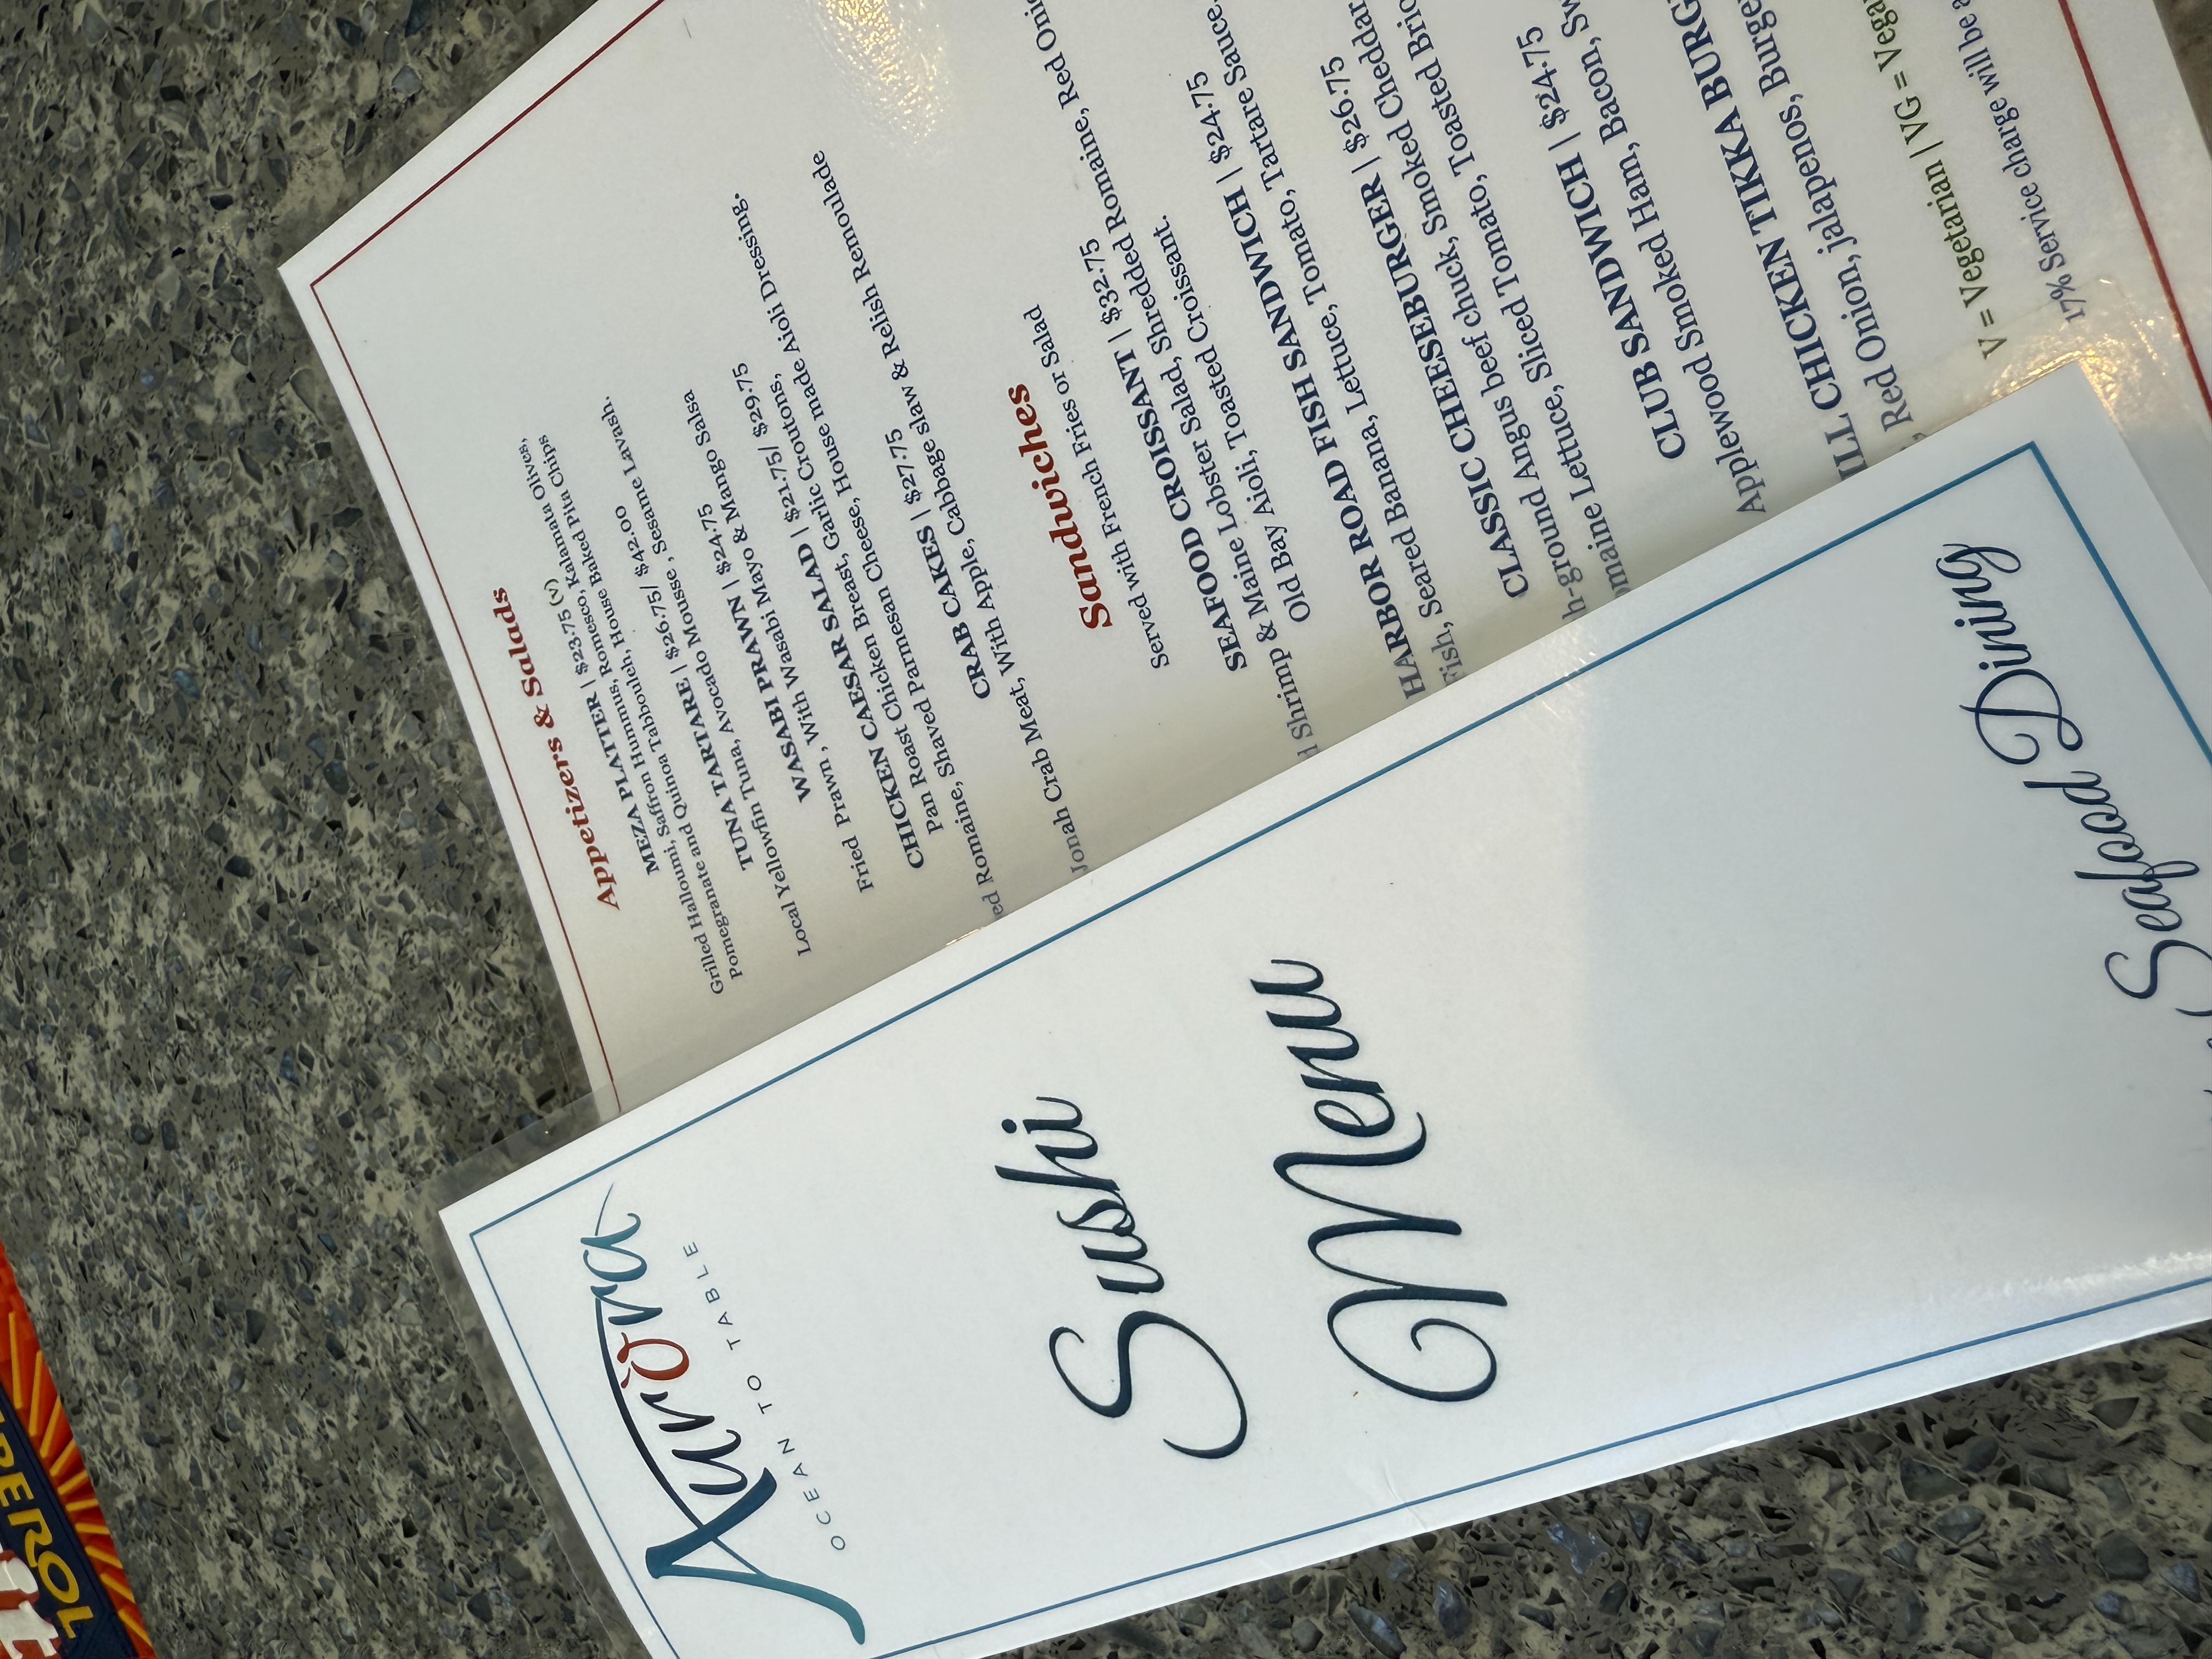 Appetizers & Salads
MEZA PLATTER | $23.75 (V)
Grilled Halloumi, Saffron Hummus, Romesco, Kalamata Olives,
Pomegranate and Quinoa Tabbouleh, House Baked Pita Chips
TUNA TARTARE | $26.75/ $42.00
Local Yellowfin Tuna, Avocado Mousse , Sesame Lavash.
WASABI PRAWN | $24.75
Fried Prawn , With Wasabi Mayo & Mango Salsa
CHICKEN CAESAR SALAD | $21.75/ $29.75
Pan Roast Chicken Breast, Garlic Croutons,
Romaine, Shaved Parmesan Cheese, House made Aioli Dressing.
CRAB CAKES | $27.75
Jonah Crab Meat, With Apple, Cabbage slaw & Relish Remoulade
Sandwiches
Served with French Fries or Salad
SEAFOOD CROISSANT | $32.75
Shrimp & Maine Lobster Salad, Shredded Romaine, Red
Old Bay Aioli, Toasted Croissant.
HARBOR ROAD FISH SANDWICH | $24.75
Fish, Seared Banana, Lettuce, Tomato, Tartare Sauce,
CLASSIC CHEESEBURGER | $26.75
ground Angus beef chuck, Smoked Cheddar
Lettuce, Sliced Tomato, Toasted
CLUB SANDWICH | $24.75
Applewood Smoked Ham, Bacon,
CHICKEN TIKKA
Red Onion, jalapenos,
V = Vegetarian | VG =
17% Service charge will be
Aurora
OCEAN TO TABLE
Sushi
Menu
Seafood Dining
EROL